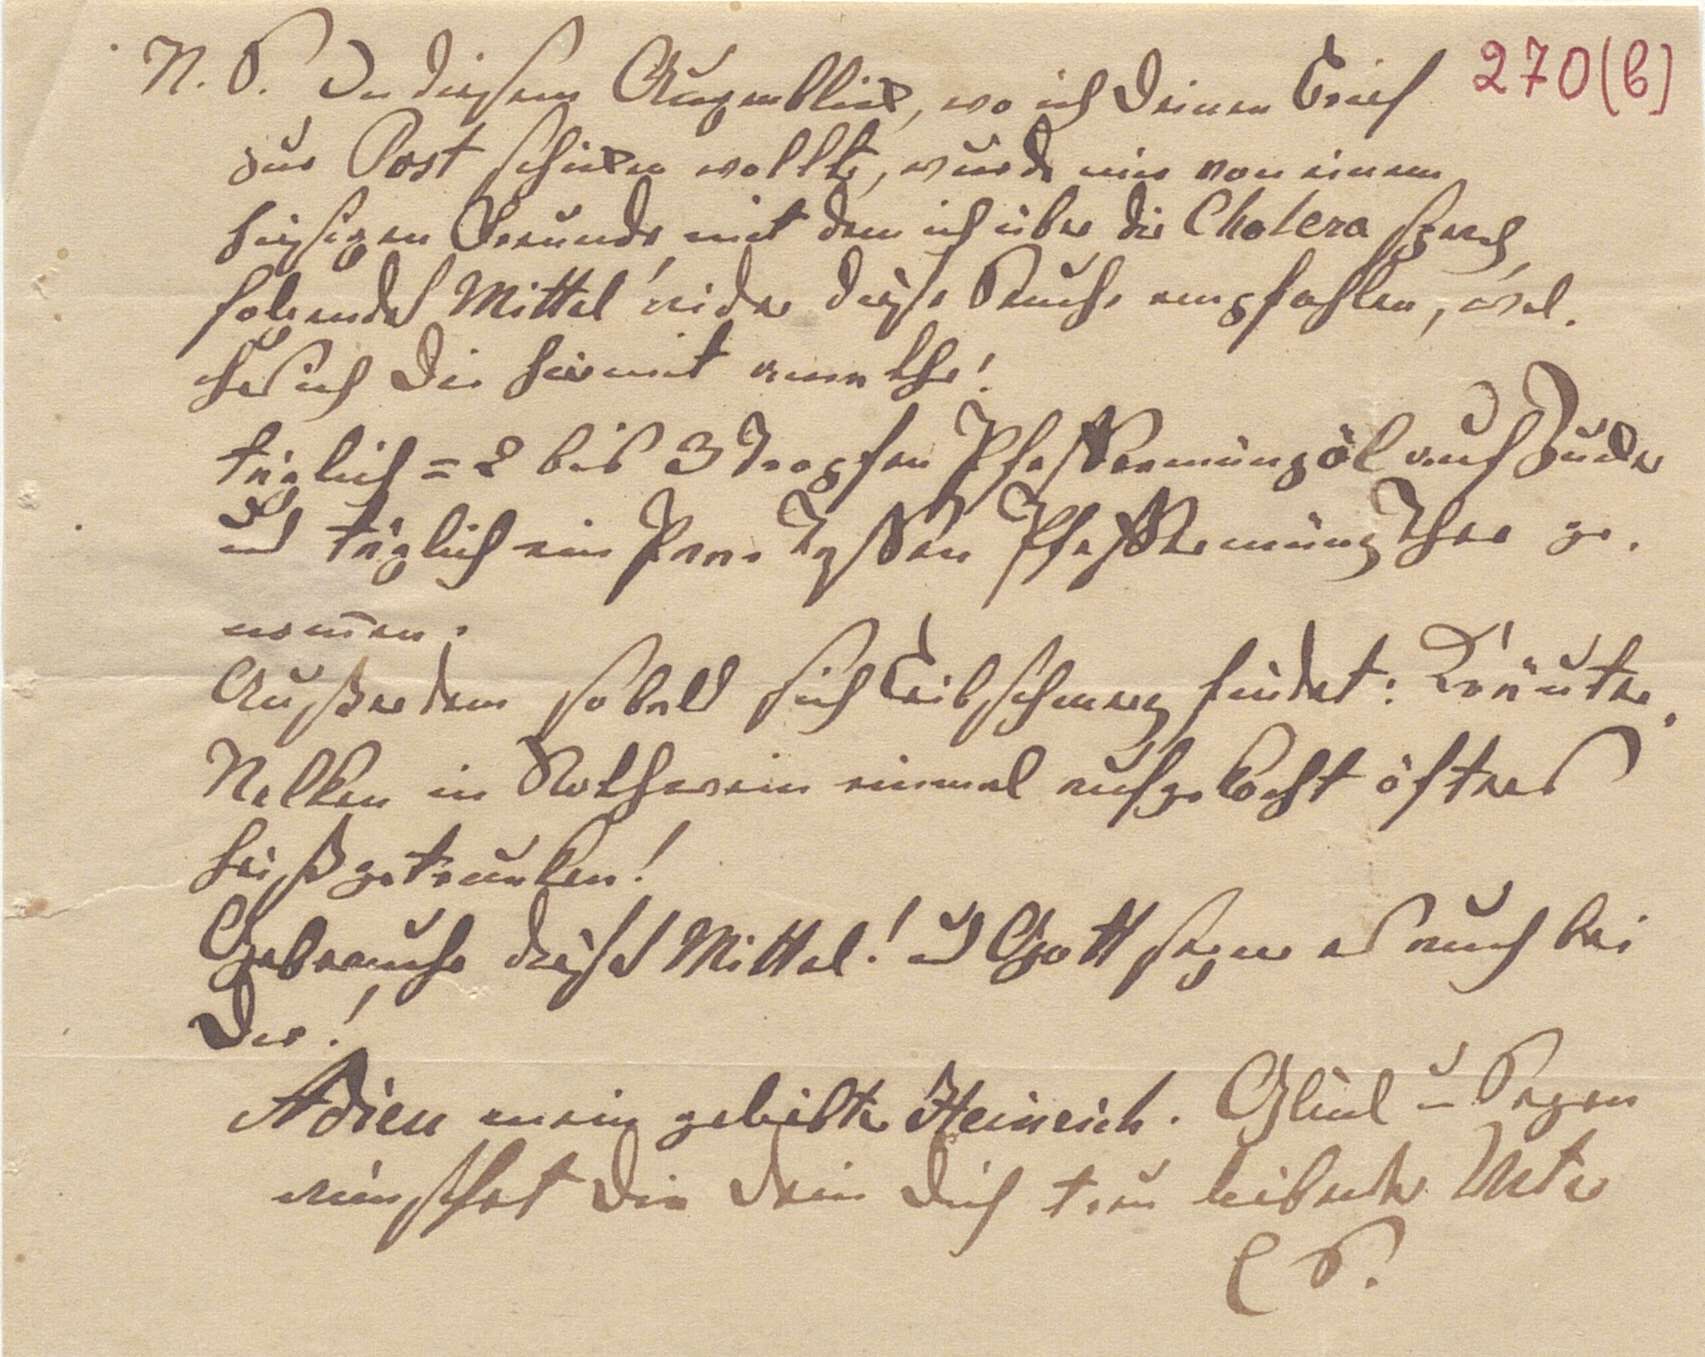 N. S. In diesem Augenblick, wo ich Deinen Brief 270(b)
zur Post schicken wollte, wurde mir von einem
hiesigen Freunde, mit dem ich über die Cholera sprach,
folgendes Mittel wider diese Seuche empfohlen, wel-
ches ich Dir hiermit anrathe!
täglich = 2 bis 3 Tropfen Pfeffermünzöl auf Zucker
und täglich ein Paar Tassen Pfeffermünz Thee ge-
nom̄en.
Außerdem sobald sich Leibschmerz findet: Kräuter-
Nelken in Rothwein einmal aufgekocht öfters
heiß getrunken!
Gebrauche dieses Mittel! und Gott segne es auch bei
Dir!
Adieu mein geliebter Heinrich. Glück u Segen
wünschet Dir Dein Dich treu liebender Vater
C S.